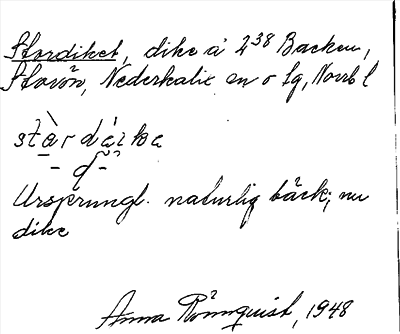 Stordiket, dike å 2³⁸ Backen,
Storön, Nederkalix en o sg, Norrb l
Ursprungl. naturlig bäck; nu
dike
Anna Rönnquist, 1948